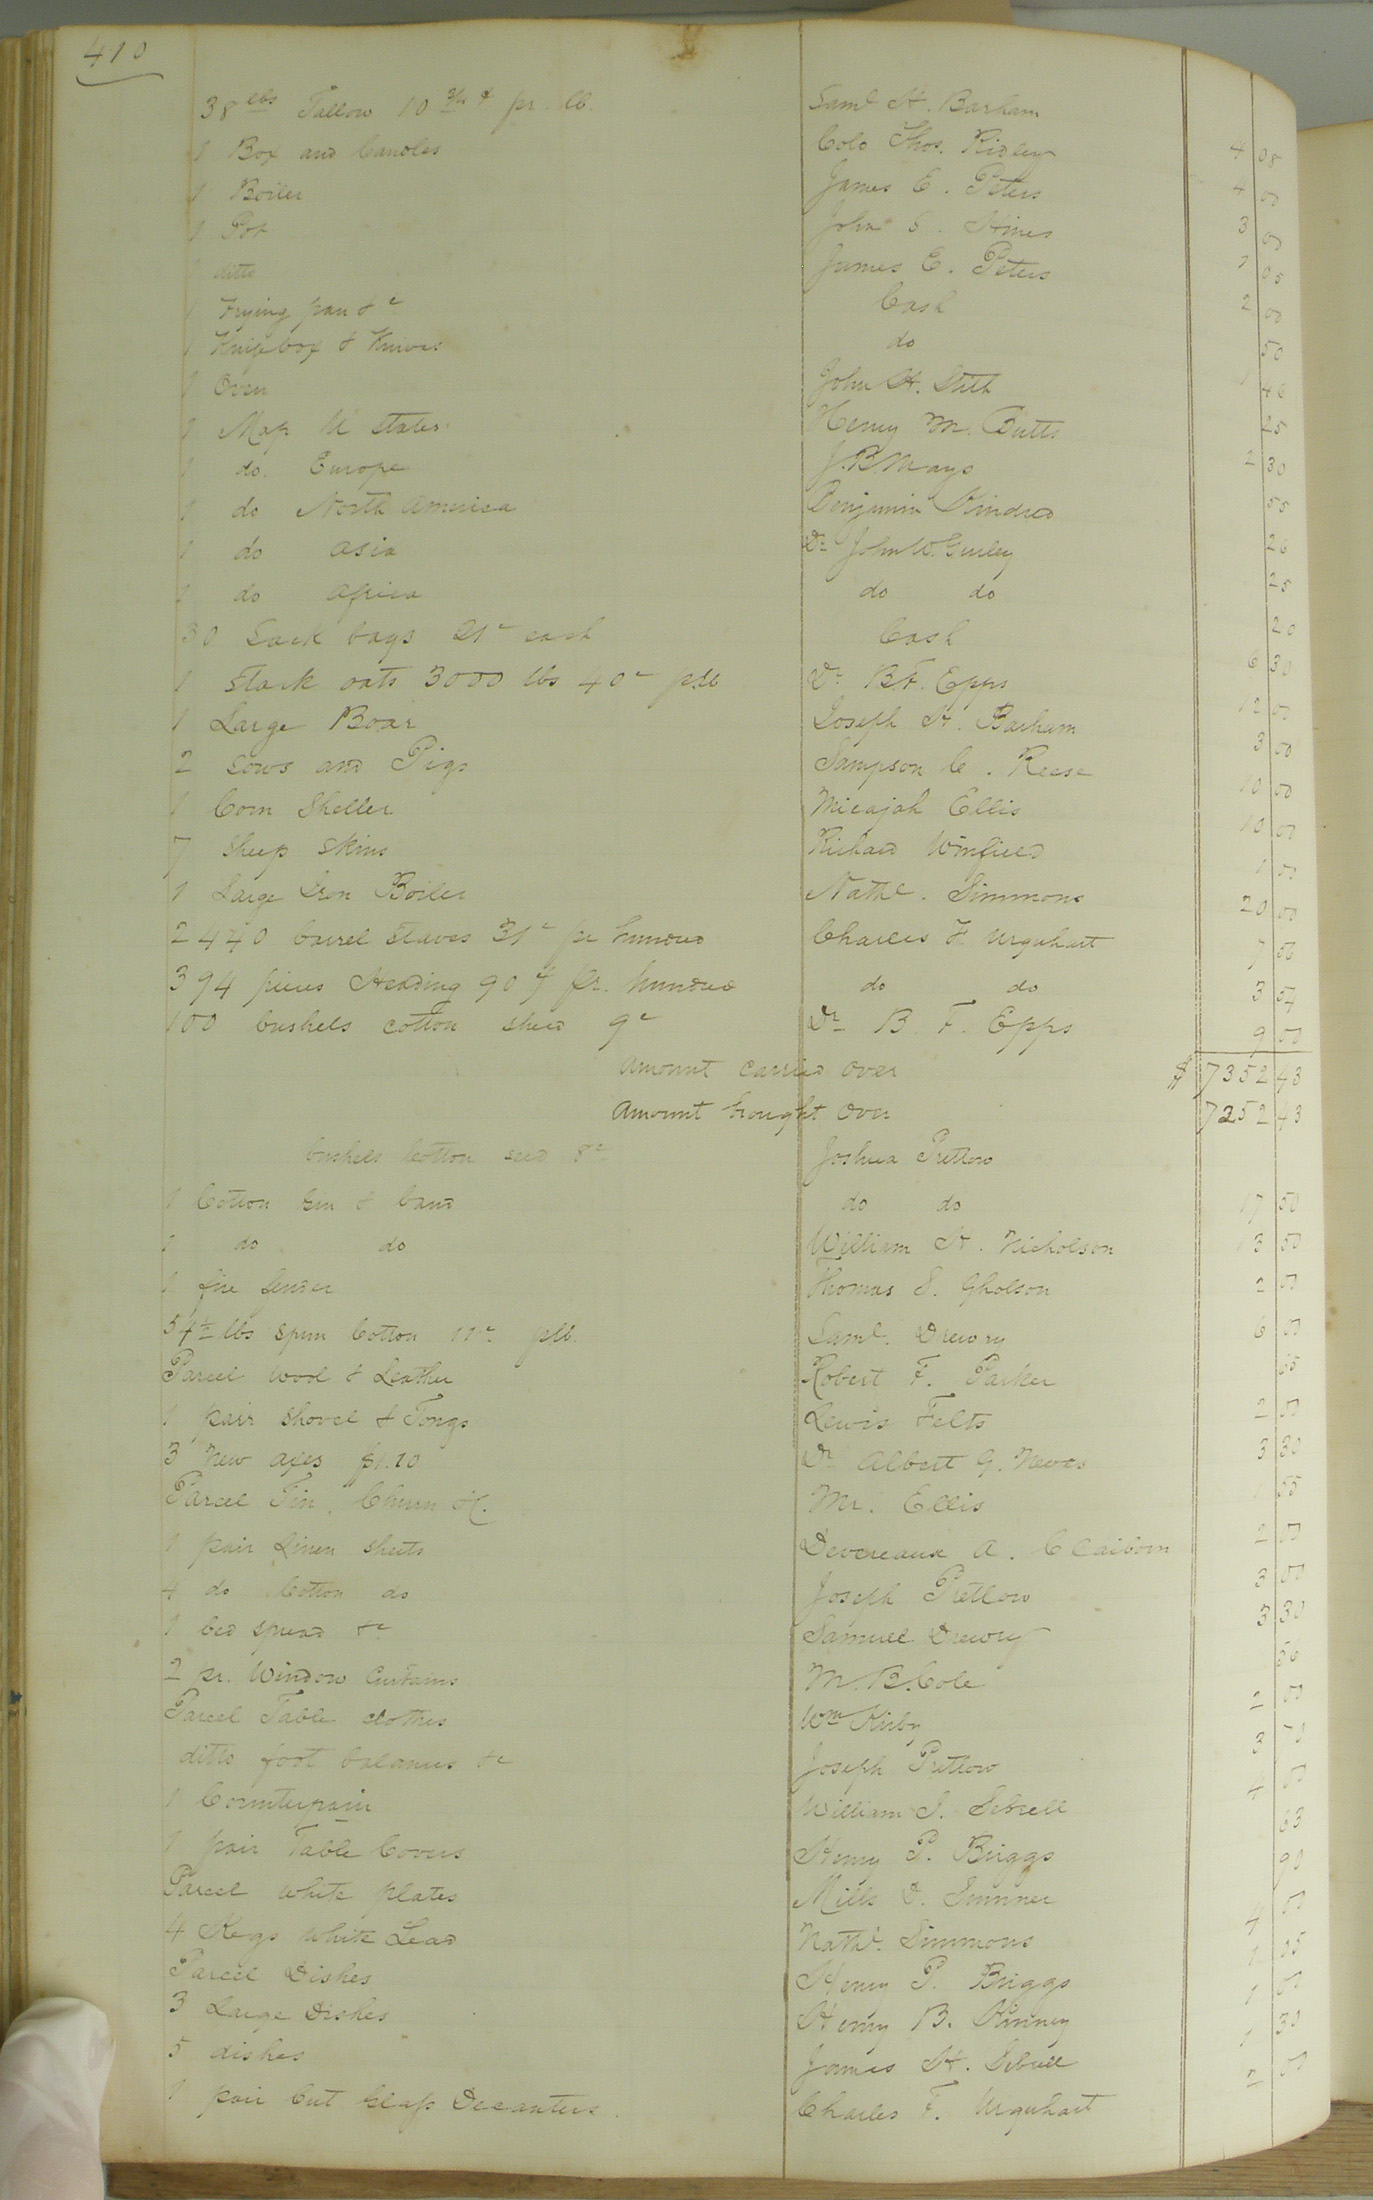 410
38 lbs Tallow 10 3/4 ₵ pr. lb. Saml H. Barham 4 08
1 Box and Candles Colo Thos. Ridley 4 00
1 Boiler James E. Peters 3 00
1 Pot John S. Hines 1 05
ditto James E. Peters 2 00
1 Frying pan &c Cash 50
1 Knife box & Knives do 1 46
1 Oven John H. Stith 25
1 Map U States Henry M. Butts 2 30
1 do. Europe J. B. Mays 55
1 do North America Benjamin Kindred 26
1 do Asia Dr John W. Gurley 25
1 do Africa do do 20
30 Sack bags 21c each Cash 6 30
1 Stack oats 3000 lbs 40c p.lb Dr B.F. Epps 12 00
1 Large Boar Joseph H. Barham 3 00
2 Sows and Pigs Sampson C. Reese 10 00
1 Corn Sheller Micajah Ellis 10 00
7 Sheep Skins Richard Winfield 1 00
1 Large Iron Boiler Nathl. Simmons 20 00
2440 barrel Staves 31c pr hundred Charles F. Urquhart 7 56
394 pieces Heading 90 ₵ pr. hundred do do 3 54
100 bushels cotton sheed 9c Dr B. F. Epps 9 00
Amount carried over $ 7352 43
Amount brought Over 7252 43
bushels Cotton seed 8c Joshua Pretlow
1 Cotton Gin & band do do 17 50
1 do do William H. Nicholson 13 50
1 fire fender Thomas S. Gholson 2 00
54 1/2 lbs Spun Cotton 11c plb. Saml. Drewry 6 00
Parcel Wool & Leather Robert F. Parker 55
1 pair Shovel & Tongs Lewis Felts 2 00
3 New axes $1.10 Dr Albert G. Neves 3 30
Parcel Tin, Churn &C. Mr. Ellis 1 55
1 pair Linen Sheets Devereaux A. Claiborn 2 00
4 do Cotton do Joseph Pretlow 3 00
1 bed spread &c Samuel Drewry 3 30
2 pr. Window Curtains M. B. Cole 50
Parcel Table clothes Wm Kirby 2 00
ditto foot &c Joseph Pretlow 3
1 Counterpain William J. Sebrell 4 00
1 pair Table Covers Henry P. Briggs 63
Parcel white plates Mills D. Sumner 90
4 Kegs White Lead Nathl. Simmons 4 00
Parcel Dishes Henry P. Briggs 1 05
3 Large Dishes Henry B. Kinney 1 00
5 dishes James H. Sebrell 1 30
1 pair Cut Glass Decanters. Charles F. Urquhart 2 00